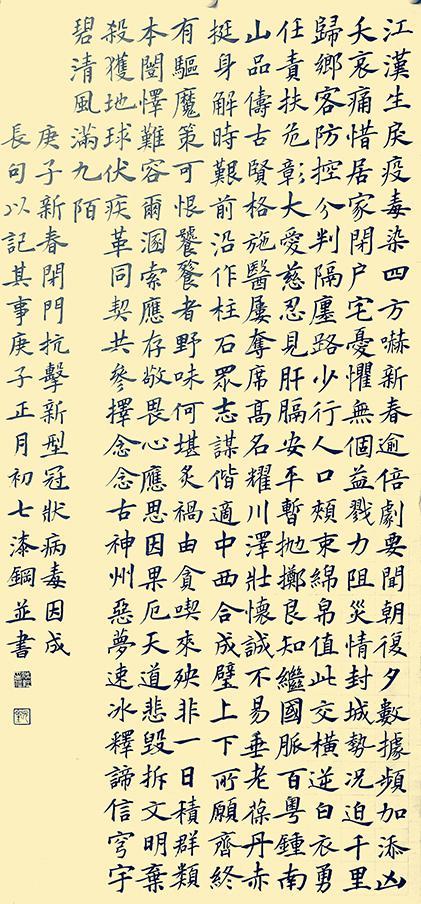 江漢生戾疫毒染四方嚇新春逾倍劇要聞朝復夕數據頻加添凶
夭哀痛惜居家閉户宅憂懼無個益戮力阻災情封城勢況迫千里
歸鄉客防控分判隔廛路少行人口頰束綿帛值此交橫逆白衣勇
任責扶危彰大愛慈忍見肝膈安平暫拋擲良知繼國脈百粵鍾南
山品儔古賢格施醫屢奪席高名耀川澤壯懷誠不易垂老葆丹赤
挺身解時艱前沿作柱石眾志謀偕適中西合成璧上下所願齊終
有驅魔策可恨饕餮者野味何堪炙禍由貪喫來殃非一日積群類
本闔懌難容爾溷索應存敬畏心應思因果厄天道悲毀拆文明棄
殺獲地球伏疾革同契共參擇念念古神州惡夢速冰釋諦信穹宇
碧清風滿九陌
庚子新春閉門抗擊新型冠狀病毒因成
長句以記其事庚子正月初七漆鋼並書